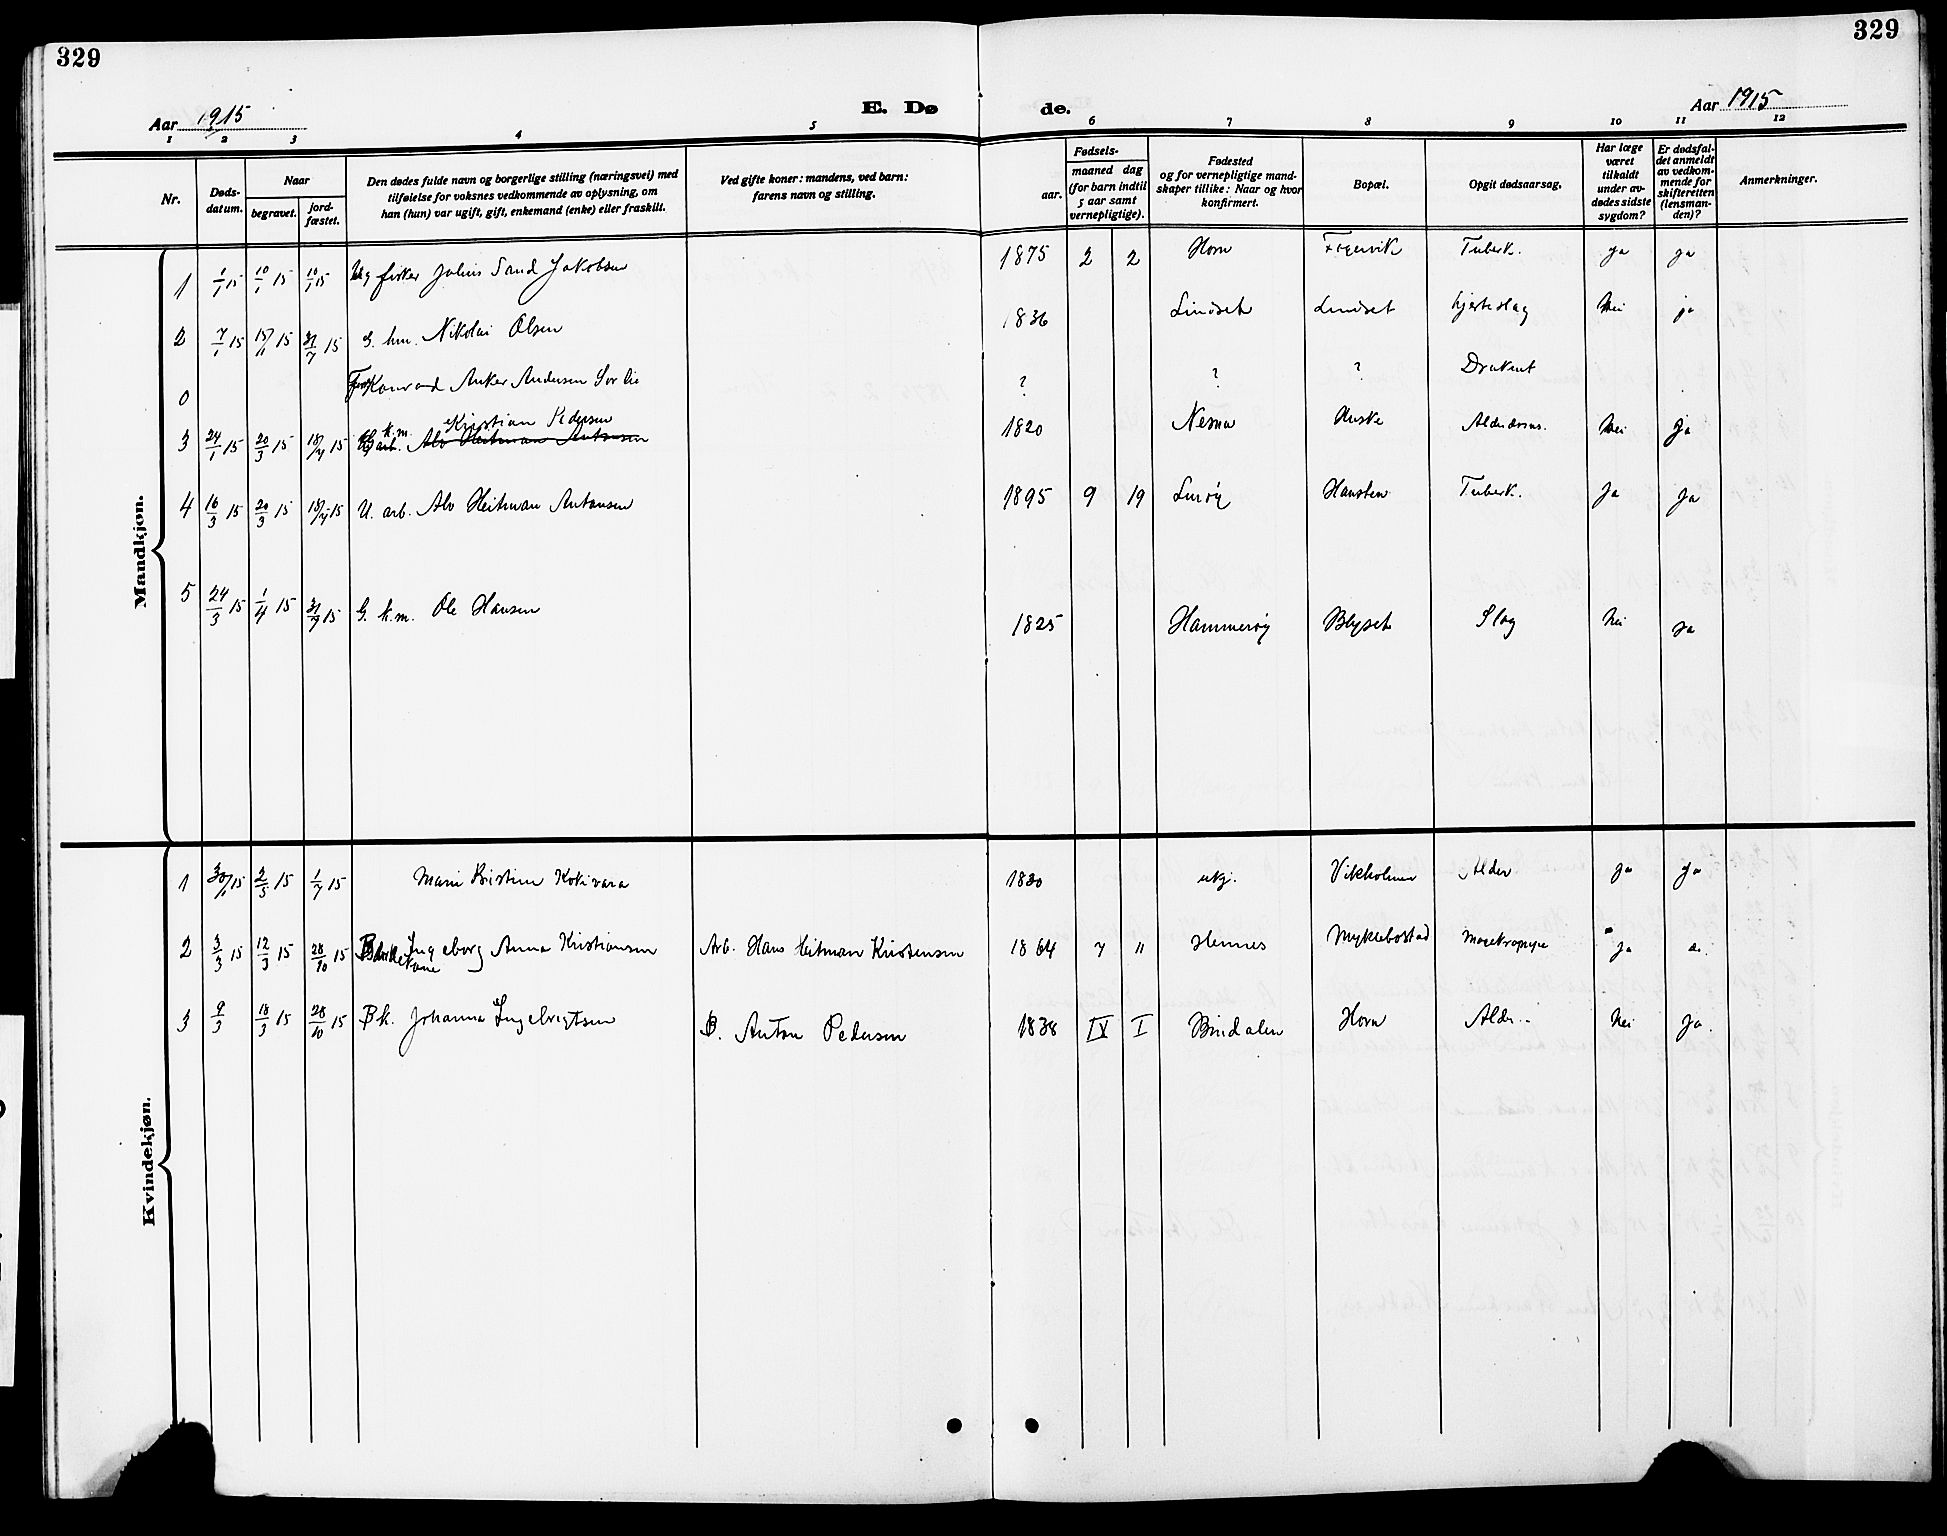 329
329
Aar 1915
E. Dø
de.
Aar 1915
1 2 3 4 5 6 7 8 9 10 11 12
Nr.
Døds-
datum.
Naar
begravet.
jord-
fæstet.
Den dødes fulde navn og borgerlige stilling (næringsvei) med
tilføielse for voksnes vedkommende av oplysning, om
han (hun) var ugift, gift, enkemand (enke) eller fraskilt.
Ved gifte koner: mandens, ved barn:
farens navn og stilling.
Fødsels-
aar.
maaned dag
(for barn indtil
5 aar samt
vernepligtige).
Fødested
og for vernepligtige mand-
skaper tillike: Naar og hvor
konfirmert.
Bopæl.
Opgit dødsaarsag.
Har læge
været
tilkaldt
under av-
dødes sidste
sygdom?
Er dødsfal-
det anmeldt
av vedkom-
mende for
skifteretten
(lensman-
den)?
Anmerkninger.
Mandkjøn.
1 1/1 15 10/1 15 10/1 15 Ug fisker Julius Sand Jakobsen 1875 2 2 Horn Tuberk. ja ja
2 7/1 15 15/11 15 31/7 15 G. hm. Nikolai Olsen 1836 Lindset Lindset hjerteslag Nei ja
0 Konrad Anker Andersen Sorlie ? ? ? Druknet
Kristian Pedersen
3 24/1 15 20/3 15 18/4 15 k.m. Alv Heitman Antonsen 1820 Nesna Huske Nei Ja
4 16/3 15 20/3 15 18/4 15 U. arb. Alv Heitman Antonsen 1895 9 19 Lurøy Hansten Tuberk. Ja Ja
5 24/3 15 1/4 15 31/7 15 G. k.m. Ole Hansen 1825 Hammerøy Slag Nei Ja
Kvindekjøn.
1 30/1 15 2/3 15 1/7 15 Marie Kristine Kokivara 1830 ukj. Vikholmen Alder Ja Ja
2 3/3 15 12/3 15 28/10 15 Ingeborg Anna Kristiansen Arb. Hans Heitman Kristensen 1864 7 " Hennes Myklebostad Ja
3 9/3 18/3 15 28/10 15 Bk. Johanna Ingebrigtsen B. Anton Pedersen 1838 IX I Bindalen Horn Alder Nei Ja.